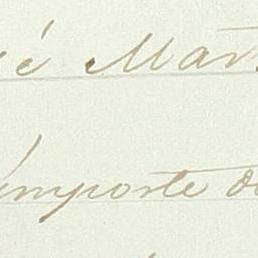 é Mar
importe d